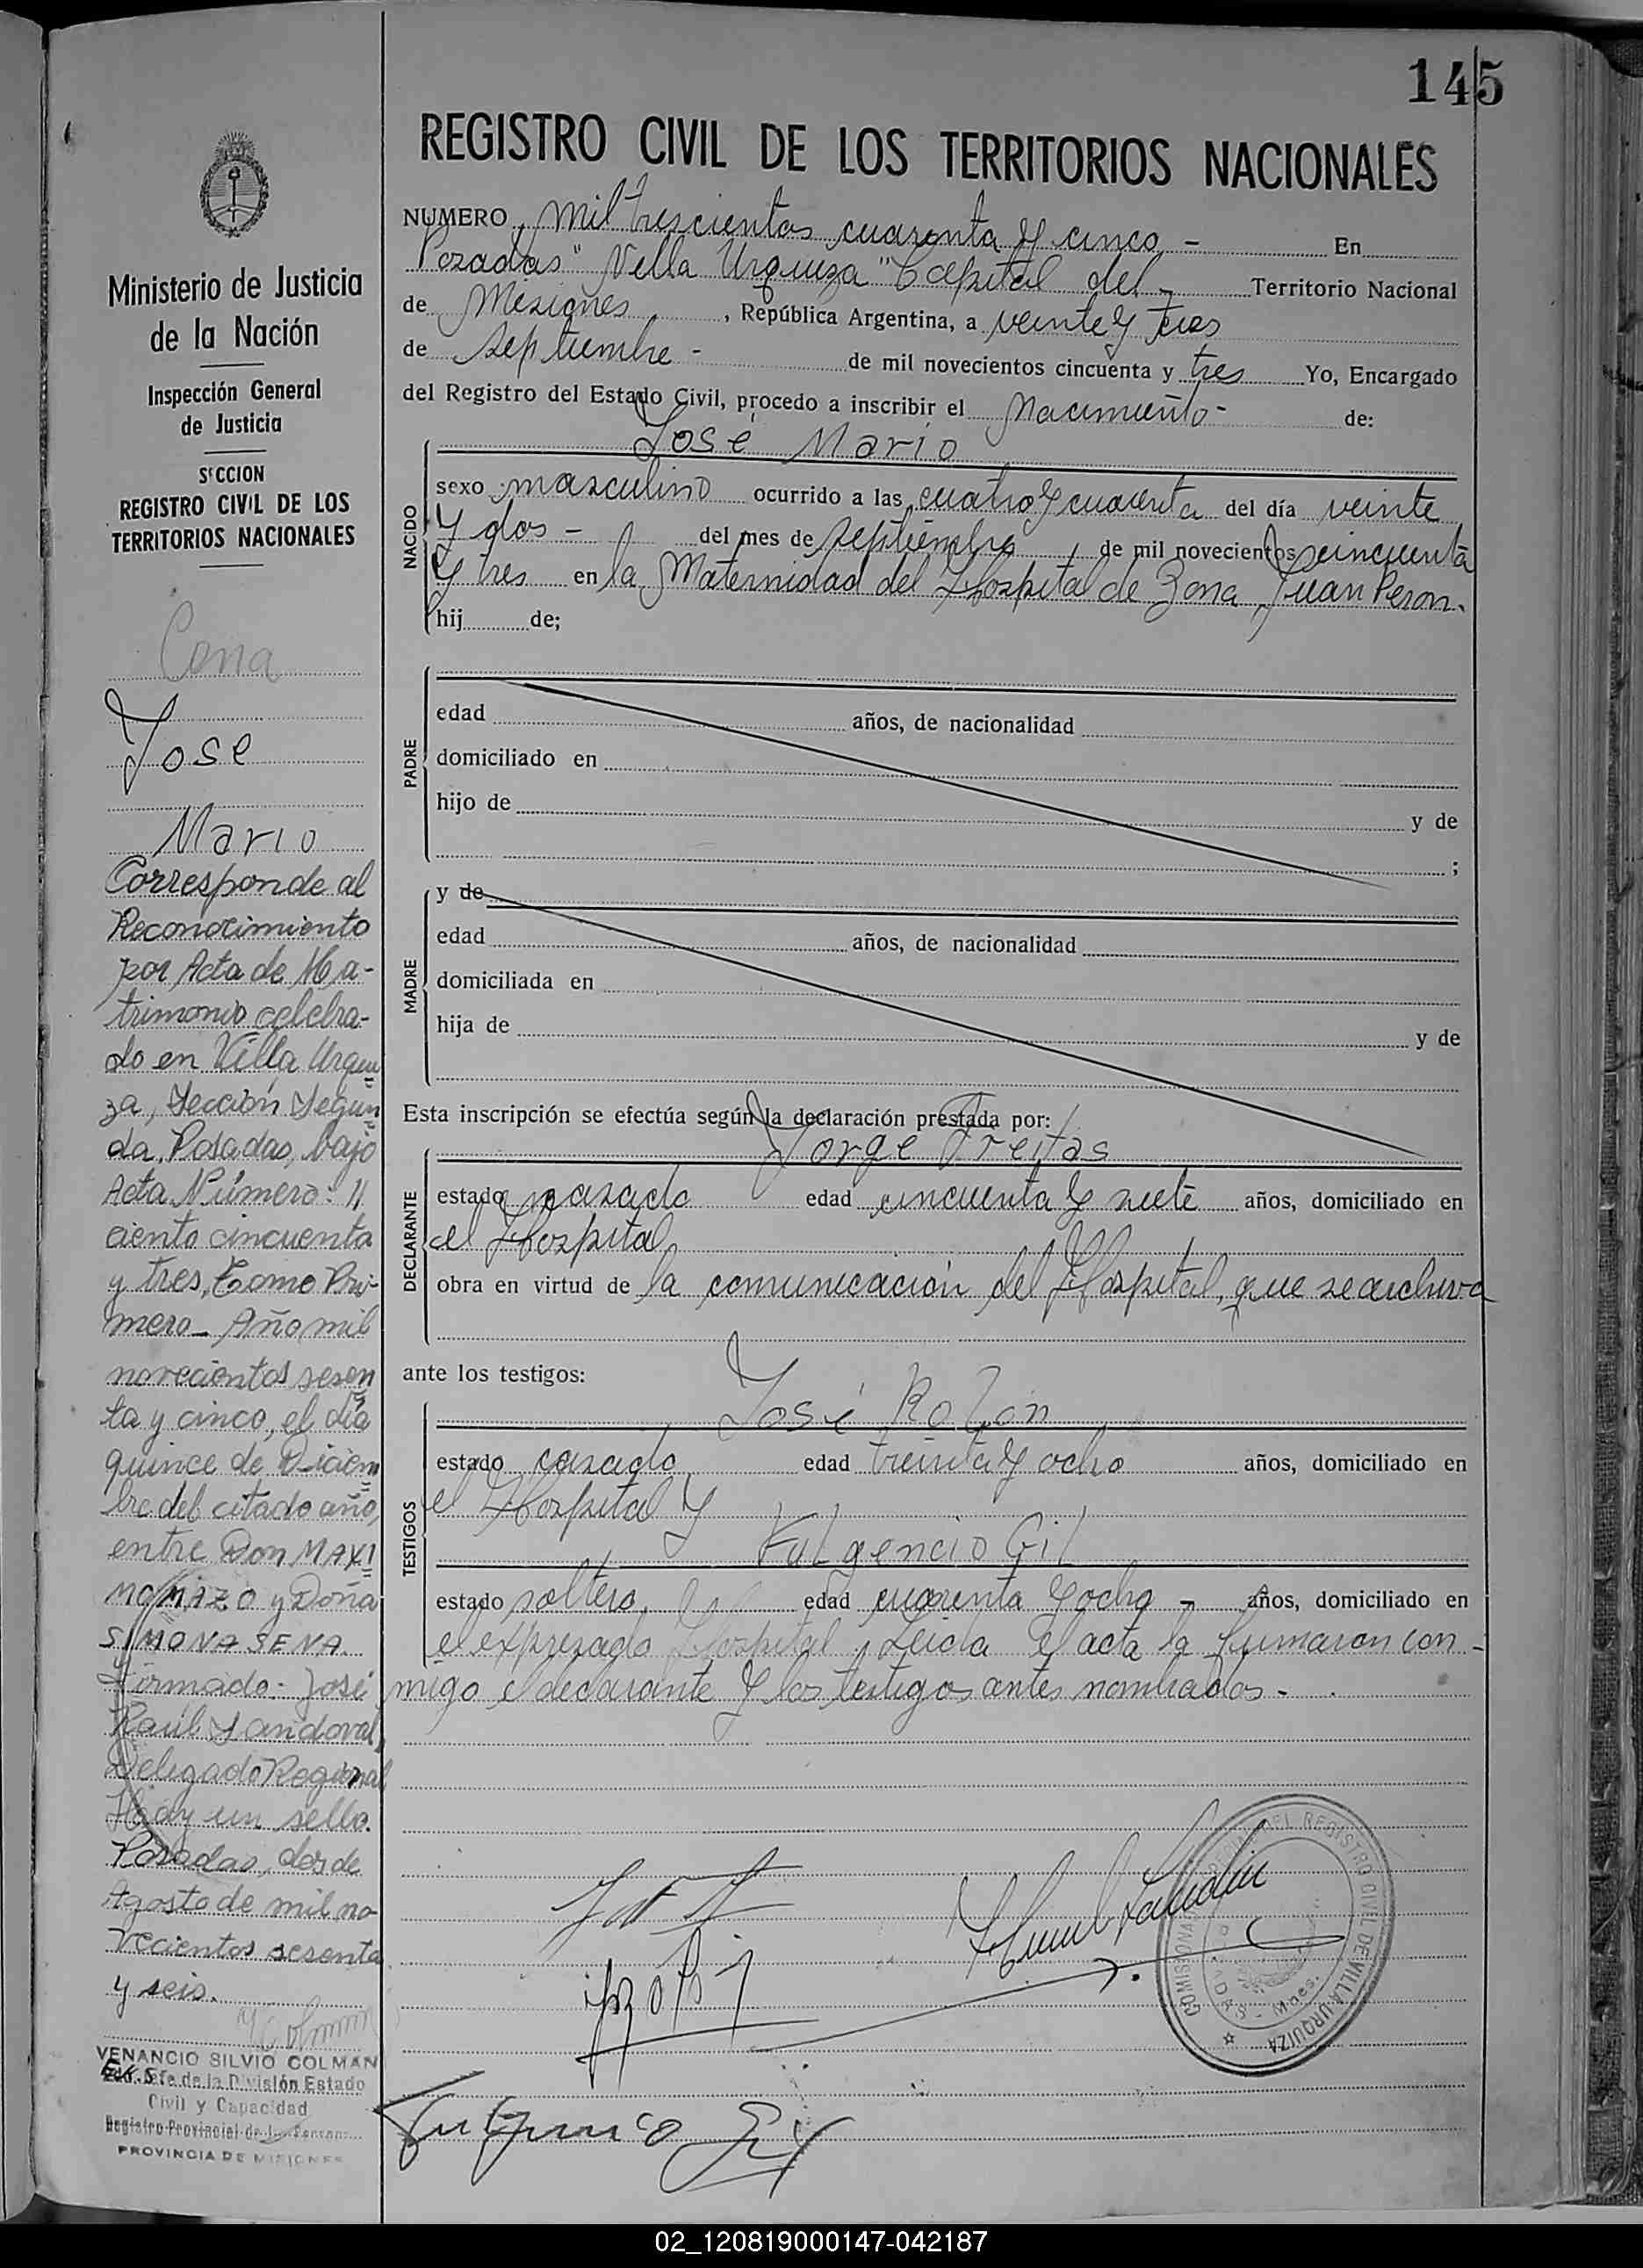 145
REGISTRO CIVIL DE LOS TERRITORIOS NACIONALES
NUMERO mil trescientos cuarenta y cinco - En
Posadas "Villa Urquiza" Capital del - Territorio Nacional
de Misiones, República Argentina, a veinte y tres
de septiembre - de mil novecientos cincuenta y tres Yo, Encargado
del Registro del Estado Civil, procedo a inscribir el Nacimiento - de:
José Mario
NACIDO
sexo masculino ocurrido a las cuatro y cuarenta del día veinte
y dos - del mes de septiembre, de mil novecientos cincuenta
y tres en la Maternidad del Hospital de Zona Juan Peron.
hij de;
PADRE
edad años, de nacionalidad
domiciliado en
hijo de y de
;
MADRE
y de
edad años, de nacionalidad
domiciliada en
hija de y de
Esta inscripción se efectúa según la declaración prestada por:
Jorge Freitas
DECLARANTE
estado casado edad cincuenta y siete años, domiciliado en
el Hospital
obra en virtud de la comunicación del Hospital, que se archiva
ante los testigos:
José Rolón
TESTIGOS
estado casado edad treinta y ocho años, domiciliado en
el Hospital y
Fulgencio Gil
estado soltero, edad cuarenta y ocho - años, domiciliado en
el expresado Hospital. Leida el acta la firmaron con-
migo el declarante y los testigos antes nombrados -
Fulgencio Gil
COMISION REGISTRO CIVIL DE VILLA URQUIZA
Mnes.
Ministerio de Justicia
de la Nación
Inspección General
de Justicia
SECCION
REGISTRO CIVIL DE LOS
TERRITORIOS NACIONALES
Cena
Jose
Mario
Corresponde al
Reconocimiento
por Acta de Ma-
trimonio celebra-
do en Villa Urqui
za, Sección Segun
da, Posadas, bajo
Acta Número: 11
ciento cincuenta
y tres, Tomo Pri-
mero - Año mil
novecientos sesen
ta y cinco, el día
quince de Diciem
bre del citado año,
entre Don MAXI
MO MAZO y Doña
SIMONA SENA.
Firmado: José
Raúl Sandoval,
Delegado Regional
Hay un sello.
Posadas, dos de
Agosto de mil no-
vecientos sesenta
y seis.
VENANCIO SILVIO COLMAN
Jefe de la División Estado
Civil y Capacidad
Registro Provincial de las Personas
PROVINCIA DE MISIONES
02_120819000147-042187